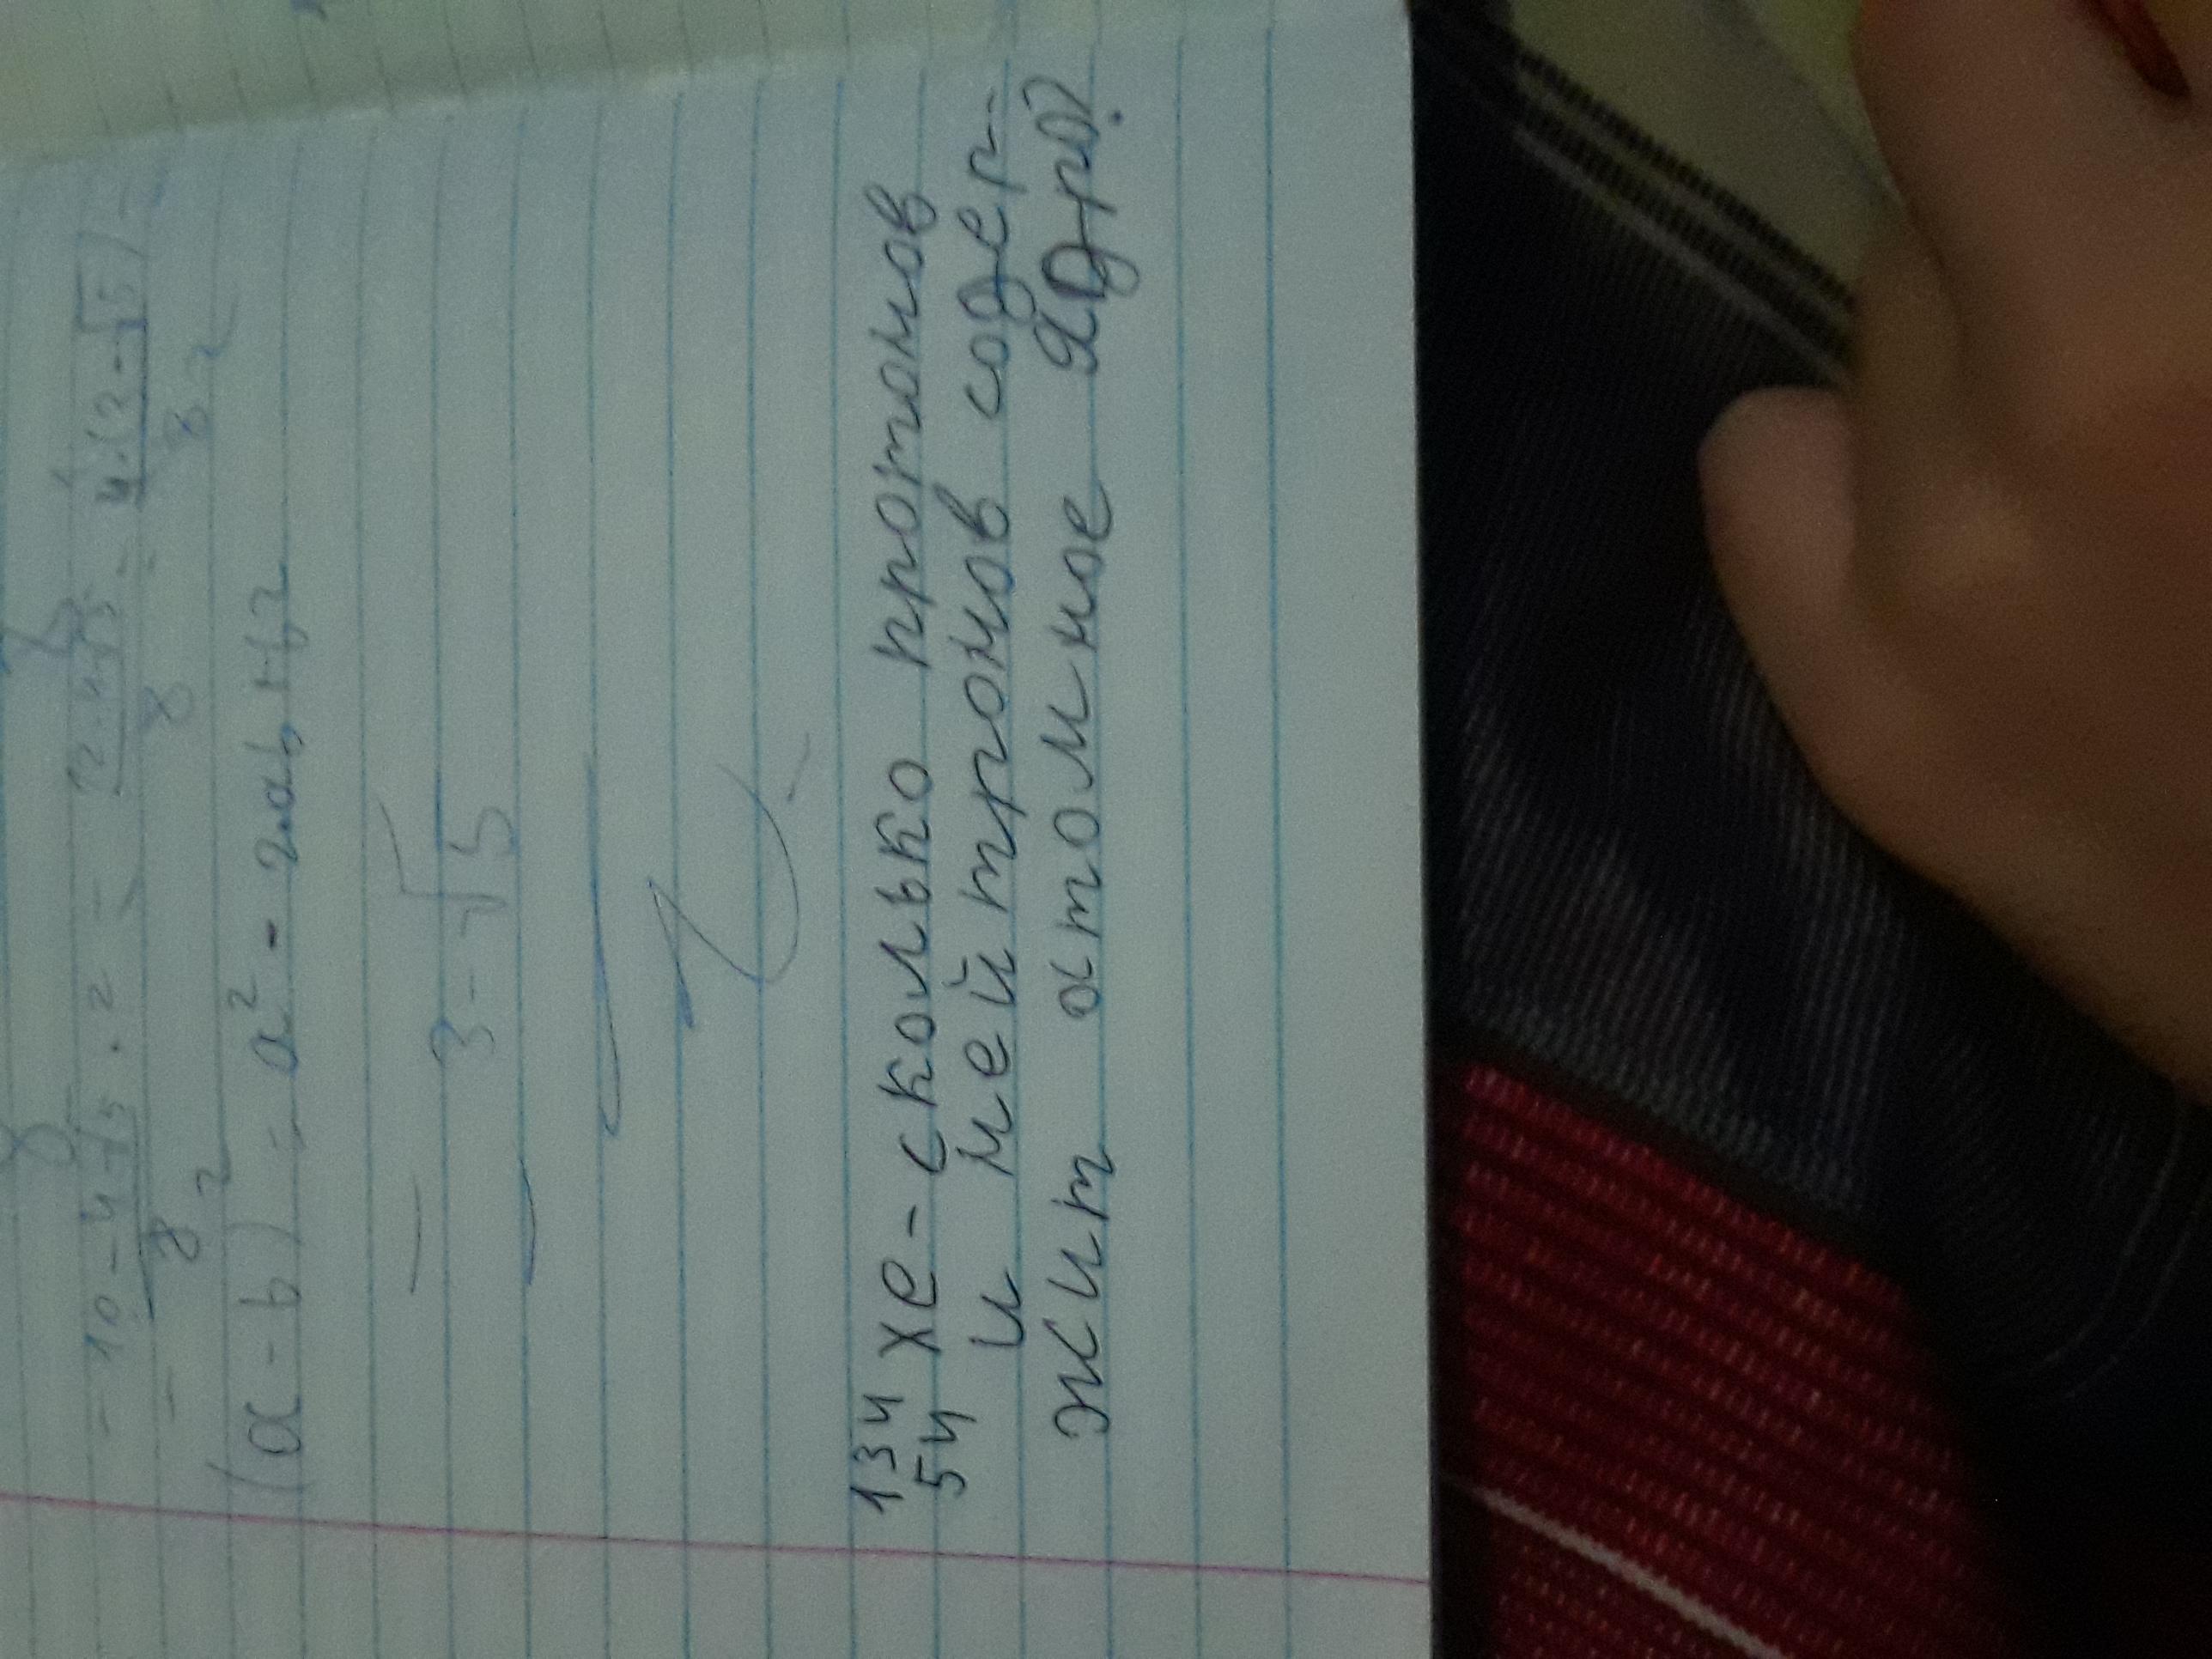 = 10-4√5/8 · 2 = 12-4√5/8 = 4·(3-√5)/8
(a-b)² = a² - 2ab + b²
3-√5
134
54 Xe - сколько протонов
и нейтронов содер-
жит атомное ядро?